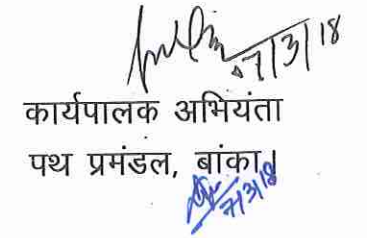 07/3/18
कार्यपालक अभियंता
पथ प्रमंडल, बांका।
7/3/18